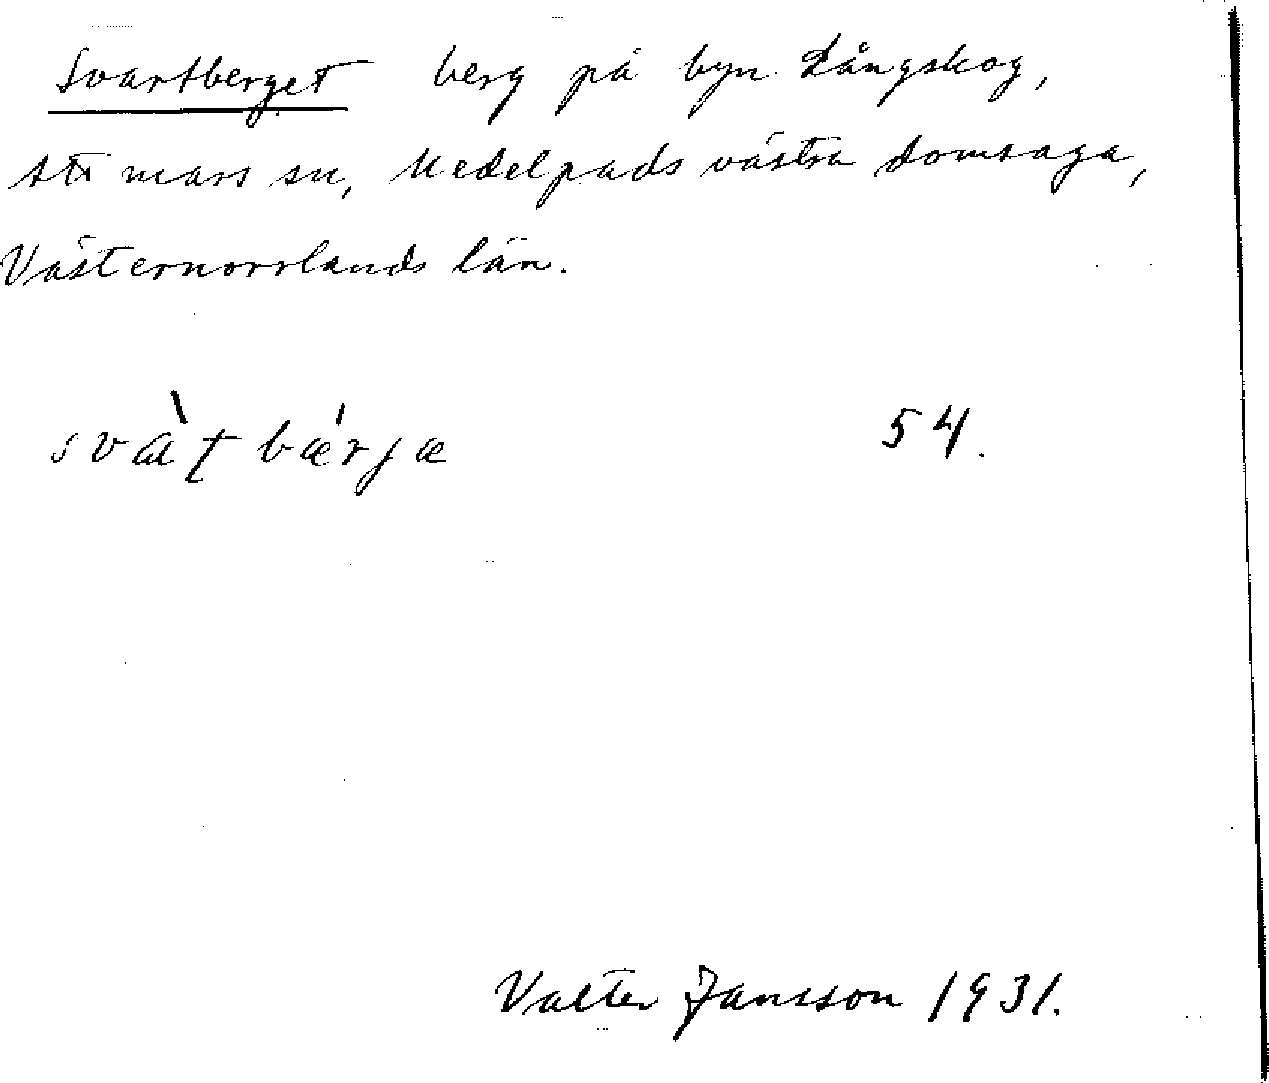 Svartberget berg på byn Långskog,
Attmars sn, Medelpads västra domsaga,
Västernorrlands län.
svà̱ṭbæ̍rjæ 54.
Valter Jansson 1931.